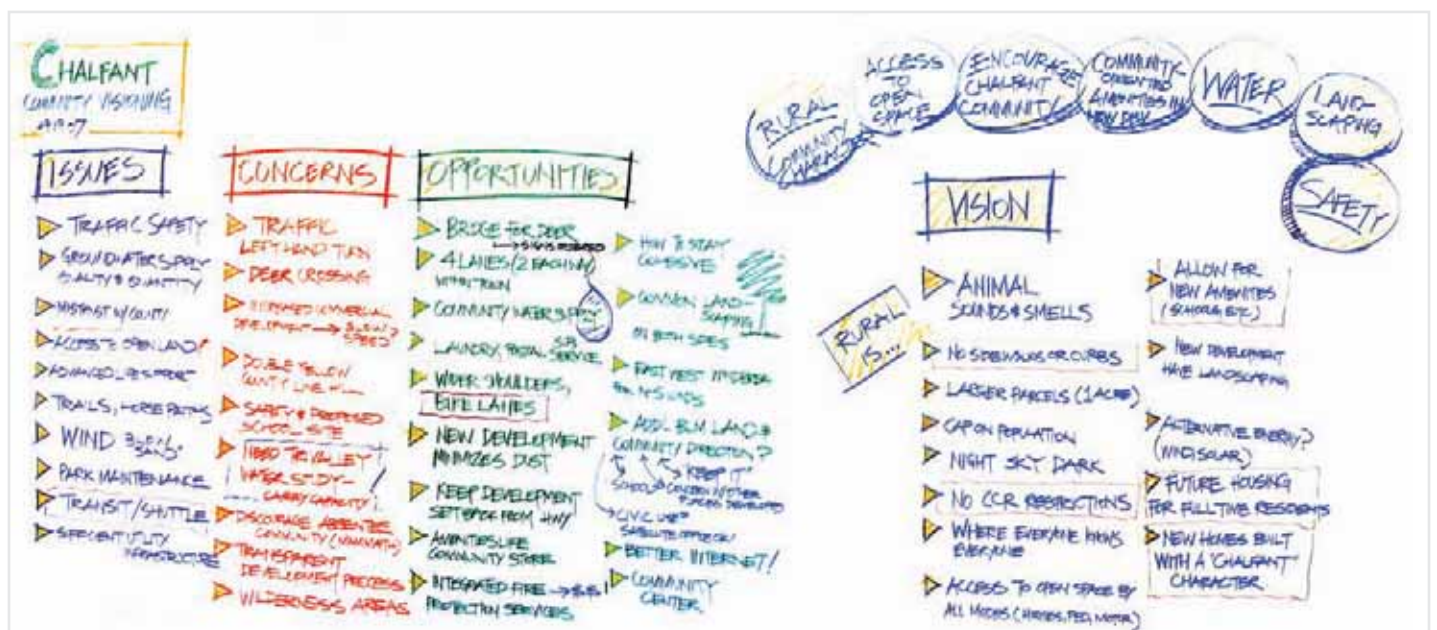 CHALFANT
COMMUNITY VISIONING
ISSUES
TRAFFIC SAFETY
GROUNDWATER SUPPLY
QUALITY & QUANTITY
MISTRUST W/COUNTY
ACCESS TO OPEN LAND!
ADVANCED LIFE SUPPORT
TRAILS, HORSE PATHS
WIND BLOWN
SAND
PARK MAINTENANCE
TRANSIT/SHUTTLE
UTILITY
INFRASTRUCTURE
CONCERNS
TRAFFIC
LEFT HAND TURN
DEER CROSSING
COMMERCIAL
DEVELOPMENT → SLOW?
SPEED?
DOUBLE YELLOW
COUNTY LINE
SAFETY & PROPOSED
SCHOOL SITE
NEED TRI VALLEY
WATER STUDY-
CARRY CAPACITY!
DISCOURAGE ABSENTEE
COMMUNITY
TRANSPARENT
DEVELOPMENT PROCESS
WILDERNESS AREAS
OPPORTUNITIES
BRIDGE FOR DEER
4 LANES (2 EACH WAY)
WITHIN TOWN
COMMUNITY WATER SUPPLY
LAUNDRY, POSTAL SERVICE
WIDER SHOULDERS,
BIKE LANES
NEW DEVELOPMENT
MINIMIZES DUST
KEEP DEVELOPMENT
SETBACK FROM HWY
AMENITIES LIKE
COMMUNITY STORE
INTEGRATED FIRE →
PROTECTION SERVICES
HOW TO STAY
COHESIVE
COMMON LAND-
SCAPING
ON BOTH SIDES
EAST WEST
ADD'L BLM LAND &
COMMUNITY DIRECTION?
SCHOOL
KEEP IT
CIVIC USE
SATELLITE OFFICE
BETTER INTERNET!
COMMUNITY
CENTER
RURAL
COMMUNITY
CHARACTER
ACCESS
TO
OPEN
SPACE
ENCOURAGE
CHALFANT
COMMUNITY
COMMUNITY-
ORIENTED
AMENITIES IN
NEW DEV.
WATER
LAND-
SCAPING
SAFETY
VISION
RURAL
IS...
ANIMAL
SOUNDS & SMELLS
NO SIDEWALKS OR CURBS
LARGER PARCELS (1 ACRE)
CAP ON POPULATION
NIGHT SKY DARK
NO CCR RESTRICTIONS
WHERE EVERYONE KNOWS
EVERYONE
ACCESS TO OPEN SPACE BY
ALL MODES (HORSES, PED, MOTOR)
ALLOW FOR
NEW AMENITIES
(SCHOOLS, ETC.)
NEW DEVELOPMENT
HAVE LANDSCAPING
ALTERNATIVE ENERGY?
(WIND/SOLAR)
FUTURE HOUSING
FOR FULLTIME RESIDENTS
NEW HOMES BUILT
WITH A "CHALFANT"
CHARACTER